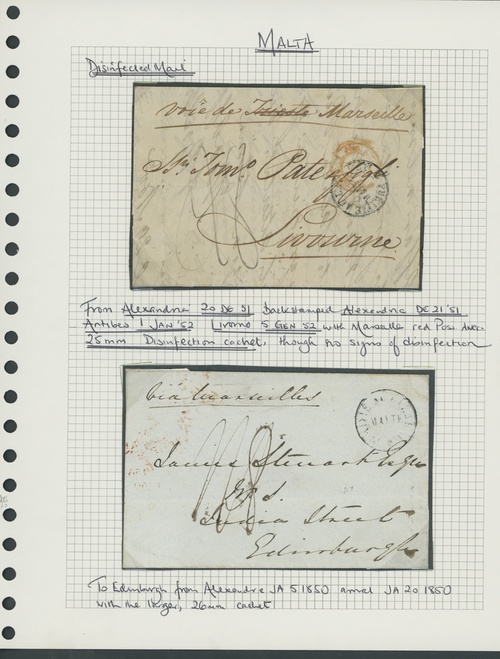 MALTA
Disinfected Mail
voie de Trieste Marseille
Sr. Tomo Patentigli
Livourne
From Alexandria 20 DE 51 backstamped Alexandria DE 21 '51
Antibes 1 JAN '52 Livorno 5 GEN 52 with Marseille red
25mm Disinfection cachet, though no signs of disinfection
Via Marseilles
James Steuart Esqr
India Street
Edinburgh
To Edinburgh from Alexandria JA 5 1850 arrival JA 20 1850
with the larger, 26mm cachet